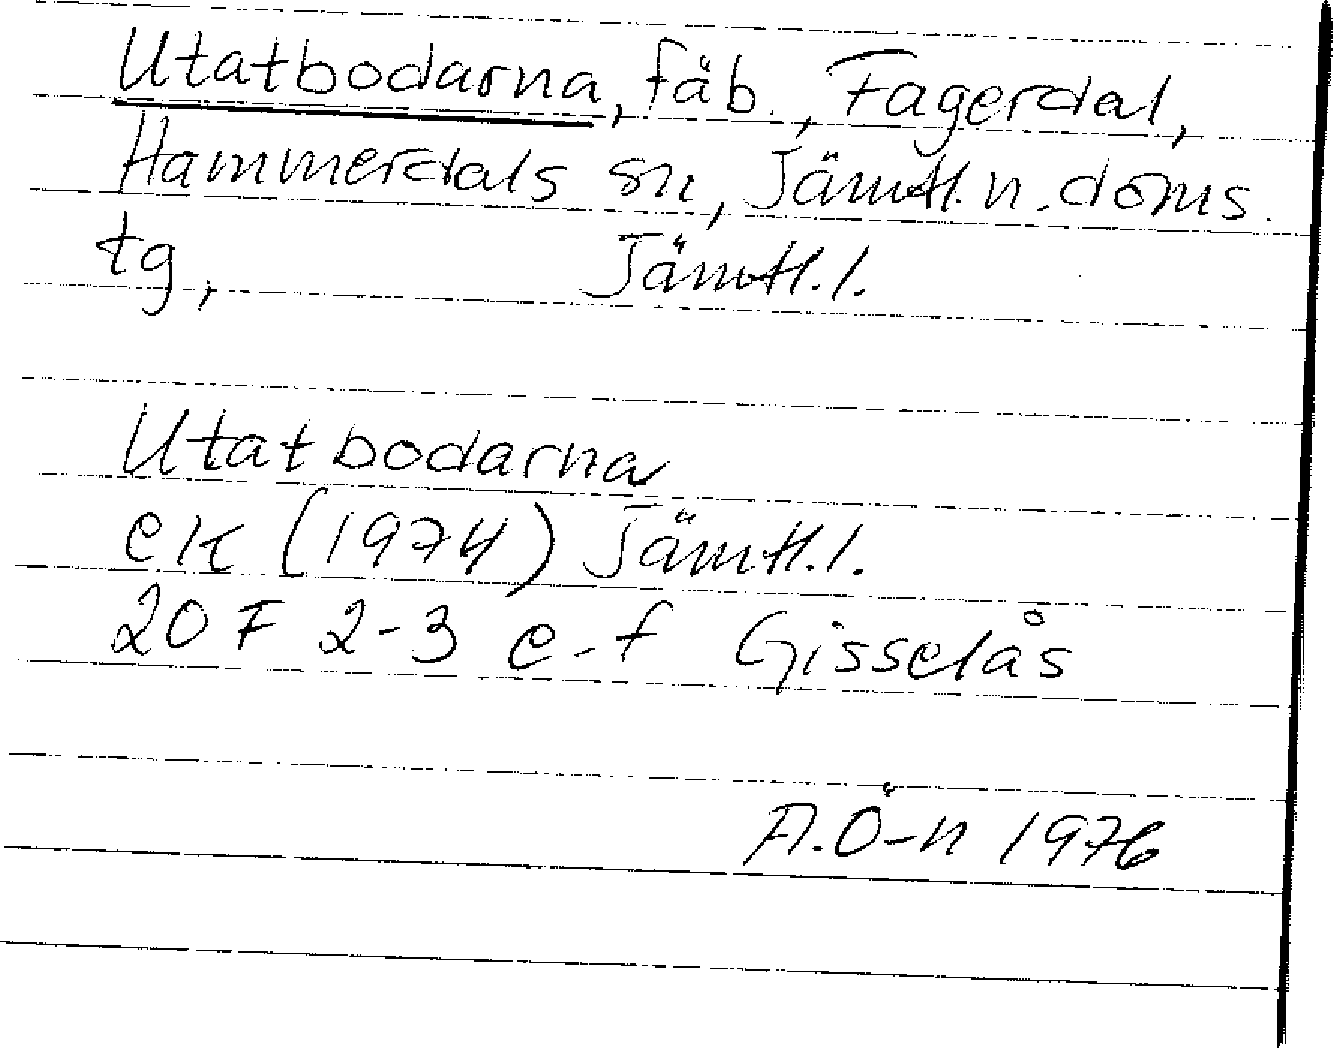 Utatbodarna, fäb., Fagerdal,
Hammerdals sn, Jämtl. n. doms.
tg, Jämtl. l.
Utatbodarna
ek (1974) Jämtl. l.
20 F 2-3 e-f Gisselås
A. Ö-n 1976